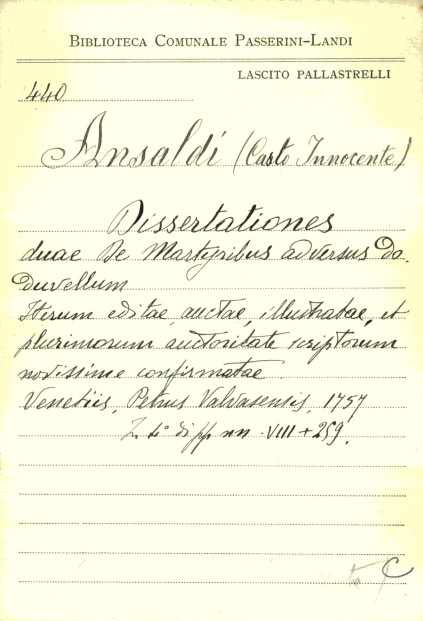 BIBLIOTECA COMUNALE PASSERINI-LANDI
LASCITO PALLASTRELLI
440
Ansaldi (Casto Innocente)
Dissertationes
duae De Martyribus adversus Do.
Duvellum
Iterum editae, auctae, illustratae, et
plurimorum auctoritate scriptorum
novissime confirmatae
Venetiis, Petrus Valvasensis, 1757
4° di pp nn. VIII + 259.
C